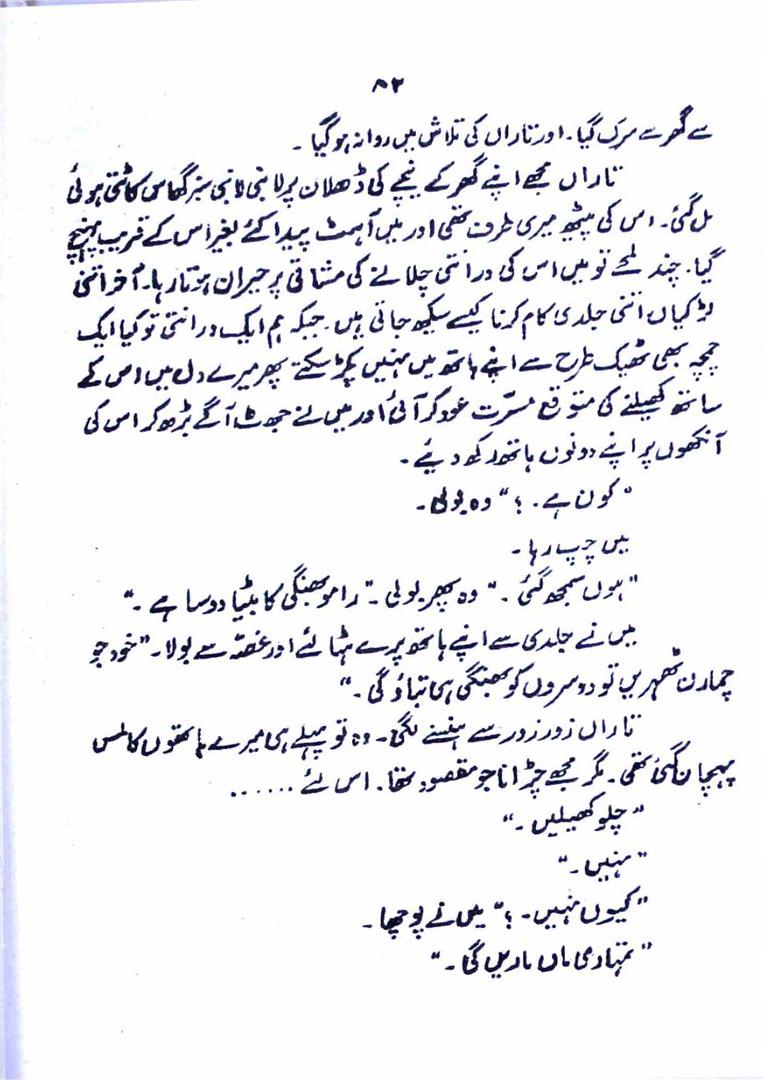 ۸۲
سے گھر سے سرک گیا۔ اور تاراں کی تلاش میں روانہ ہو گیا ۔
تاراں مجھے اپنے گھر کے نیچے کی ڈھلان پر لانبی لانبی سبز گھاس کاٹتی ہوئی
مل گئی۔ اس کی پیٹھ میری طرف تھی اور میں آہٹ پیدا کئے بغیر اس کے قریب پہنچ
گیا۔ چند لمحے تو میں اس کی درانتی چلانے کی مشاقی پر حیران ہوتا رہا۔ آخر اتنی
لڑکیاں اتنی جلدی کام کرنا کیسے سیکھ جاتی ہیں۔ جبکہ ہم ایک درانتی تو کیا ایک
چمچہ بھی ٹھیک طرح سے اپنے ہاتھ میں نہیں پکڑ سکتے پھر میرے دل میں اس کے
ساتھ کھیلنے کی متوقع مسرّت عود کر آئی اور میں نے جھٹ آگے بڑھ کر اس کی
آنکھوں پر اپنے دونوں ہاتھ رکھ دیئے ۔
"کون ہے ۔ ؟" وہ بولی۔
میں چپ رہا ۔
"ہوں سمجھ گئی ۔" وہ پھر بولی ۔" رامو بھنگی کا بٹیا دوسا ہے ۔"
میں نے جلدی سے اپنے ہاتھ پرے ہٹا لئے اور غصّہ سے بولا ۔" خود جو
چمارن ٹھہریں تو دوسروں کو بھنگی ہی بتاؤ گی ۔"
تاراں زور زور سے ہنسنے لگی ۔ وہ تو پہلے ہی میرے ہاتھوں کا لمس
پہچان گئی تھی ۔ مگر مجھے چڑانا جو مقصود تھا ۔ اس لئے ......
"چلو کھیلیں ۔"
"نہیں ۔"
"کیوں نہیں ۔ ؟" میں نے پوچھا ۔
"تمہاری ماں ماریں گی ۔"